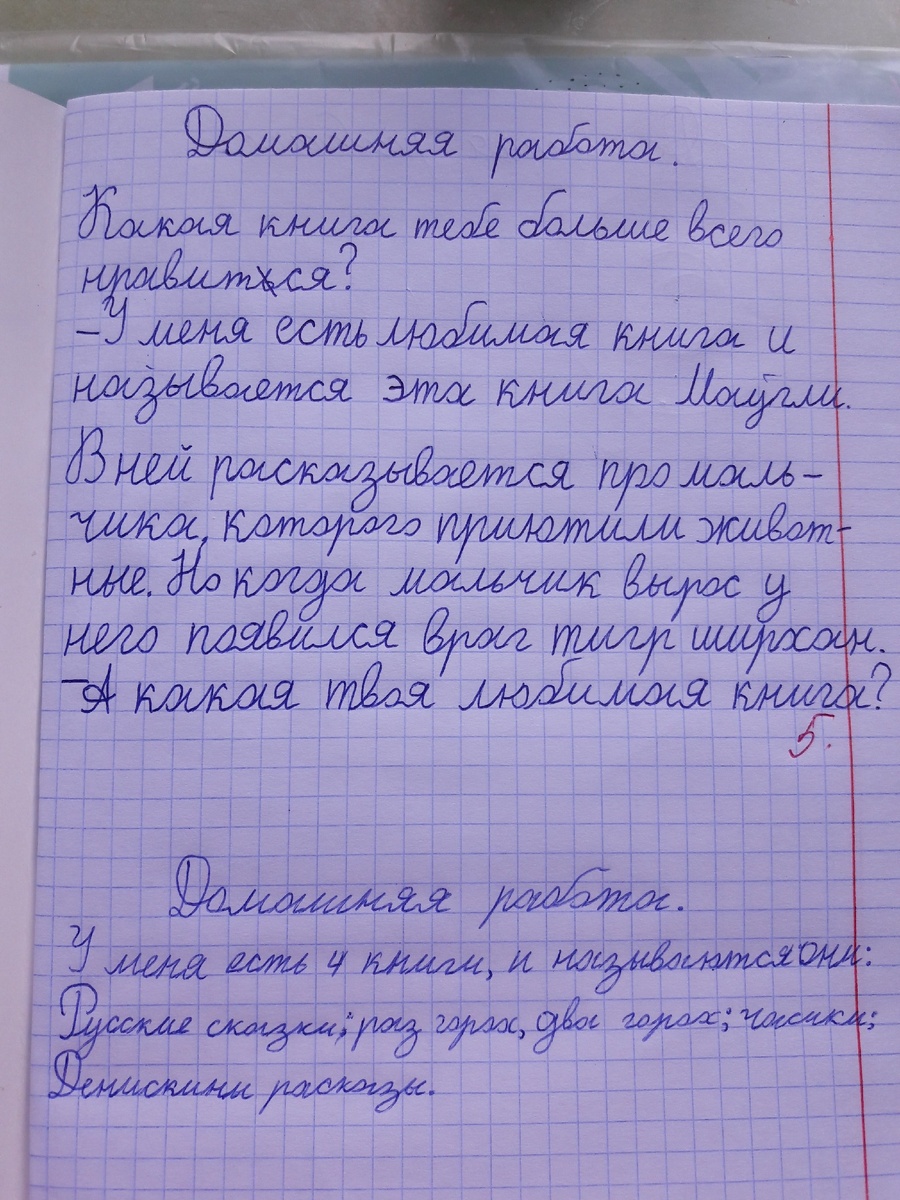 Домашняя работа.
Какая книга тебе больше всего
нравится?
–У меня есть любимая книга и
называется эта книга Маугли.
В ней расказывается про маль-
чика, которого приютили живот-
ные. Но когда мальчик вырос у
него появился враг тигр ширхан.
–А какая твоя любимая книга?
5.
Домашняя работа.
У меня есть 4 книги, и называются они:
Русские сказки; раз горох, два горох; часики;
Денискины расказы.